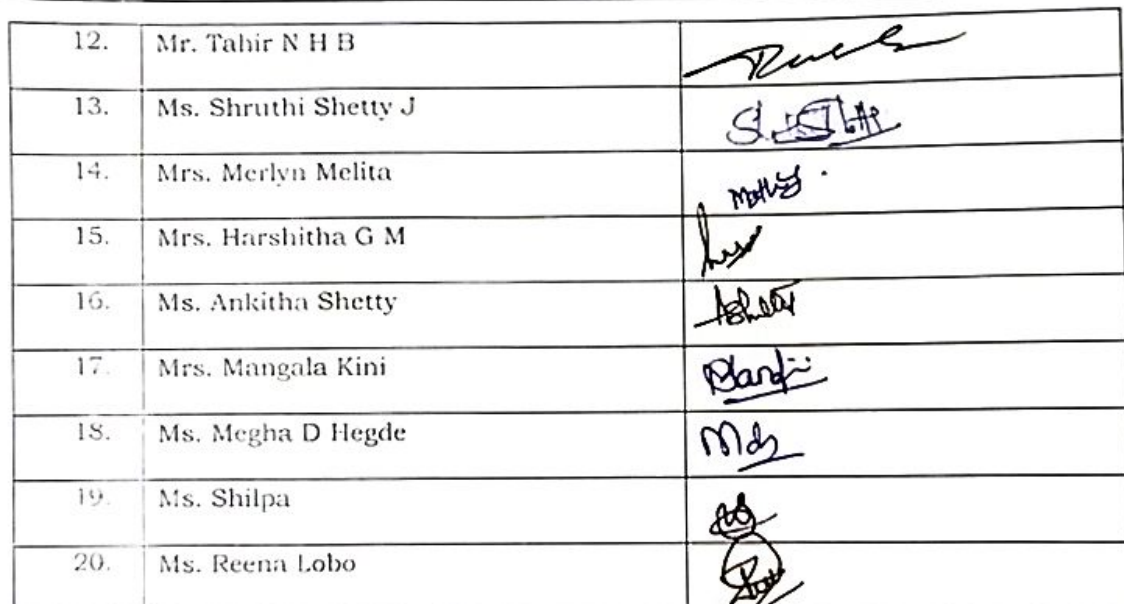 12. Mr. Tahir N H B
13. Ms. Shruthi Shetty J
14. Mrs. Merlyn Melita
15. Mrs. Harshitha G M
16. Ms. Ankitha Shetty AShetty
17. Mrs. Mangala Kini
18. Ms. Megha D Hegde
19. Ms. Shilpa
20. Ms. Reena Lobo